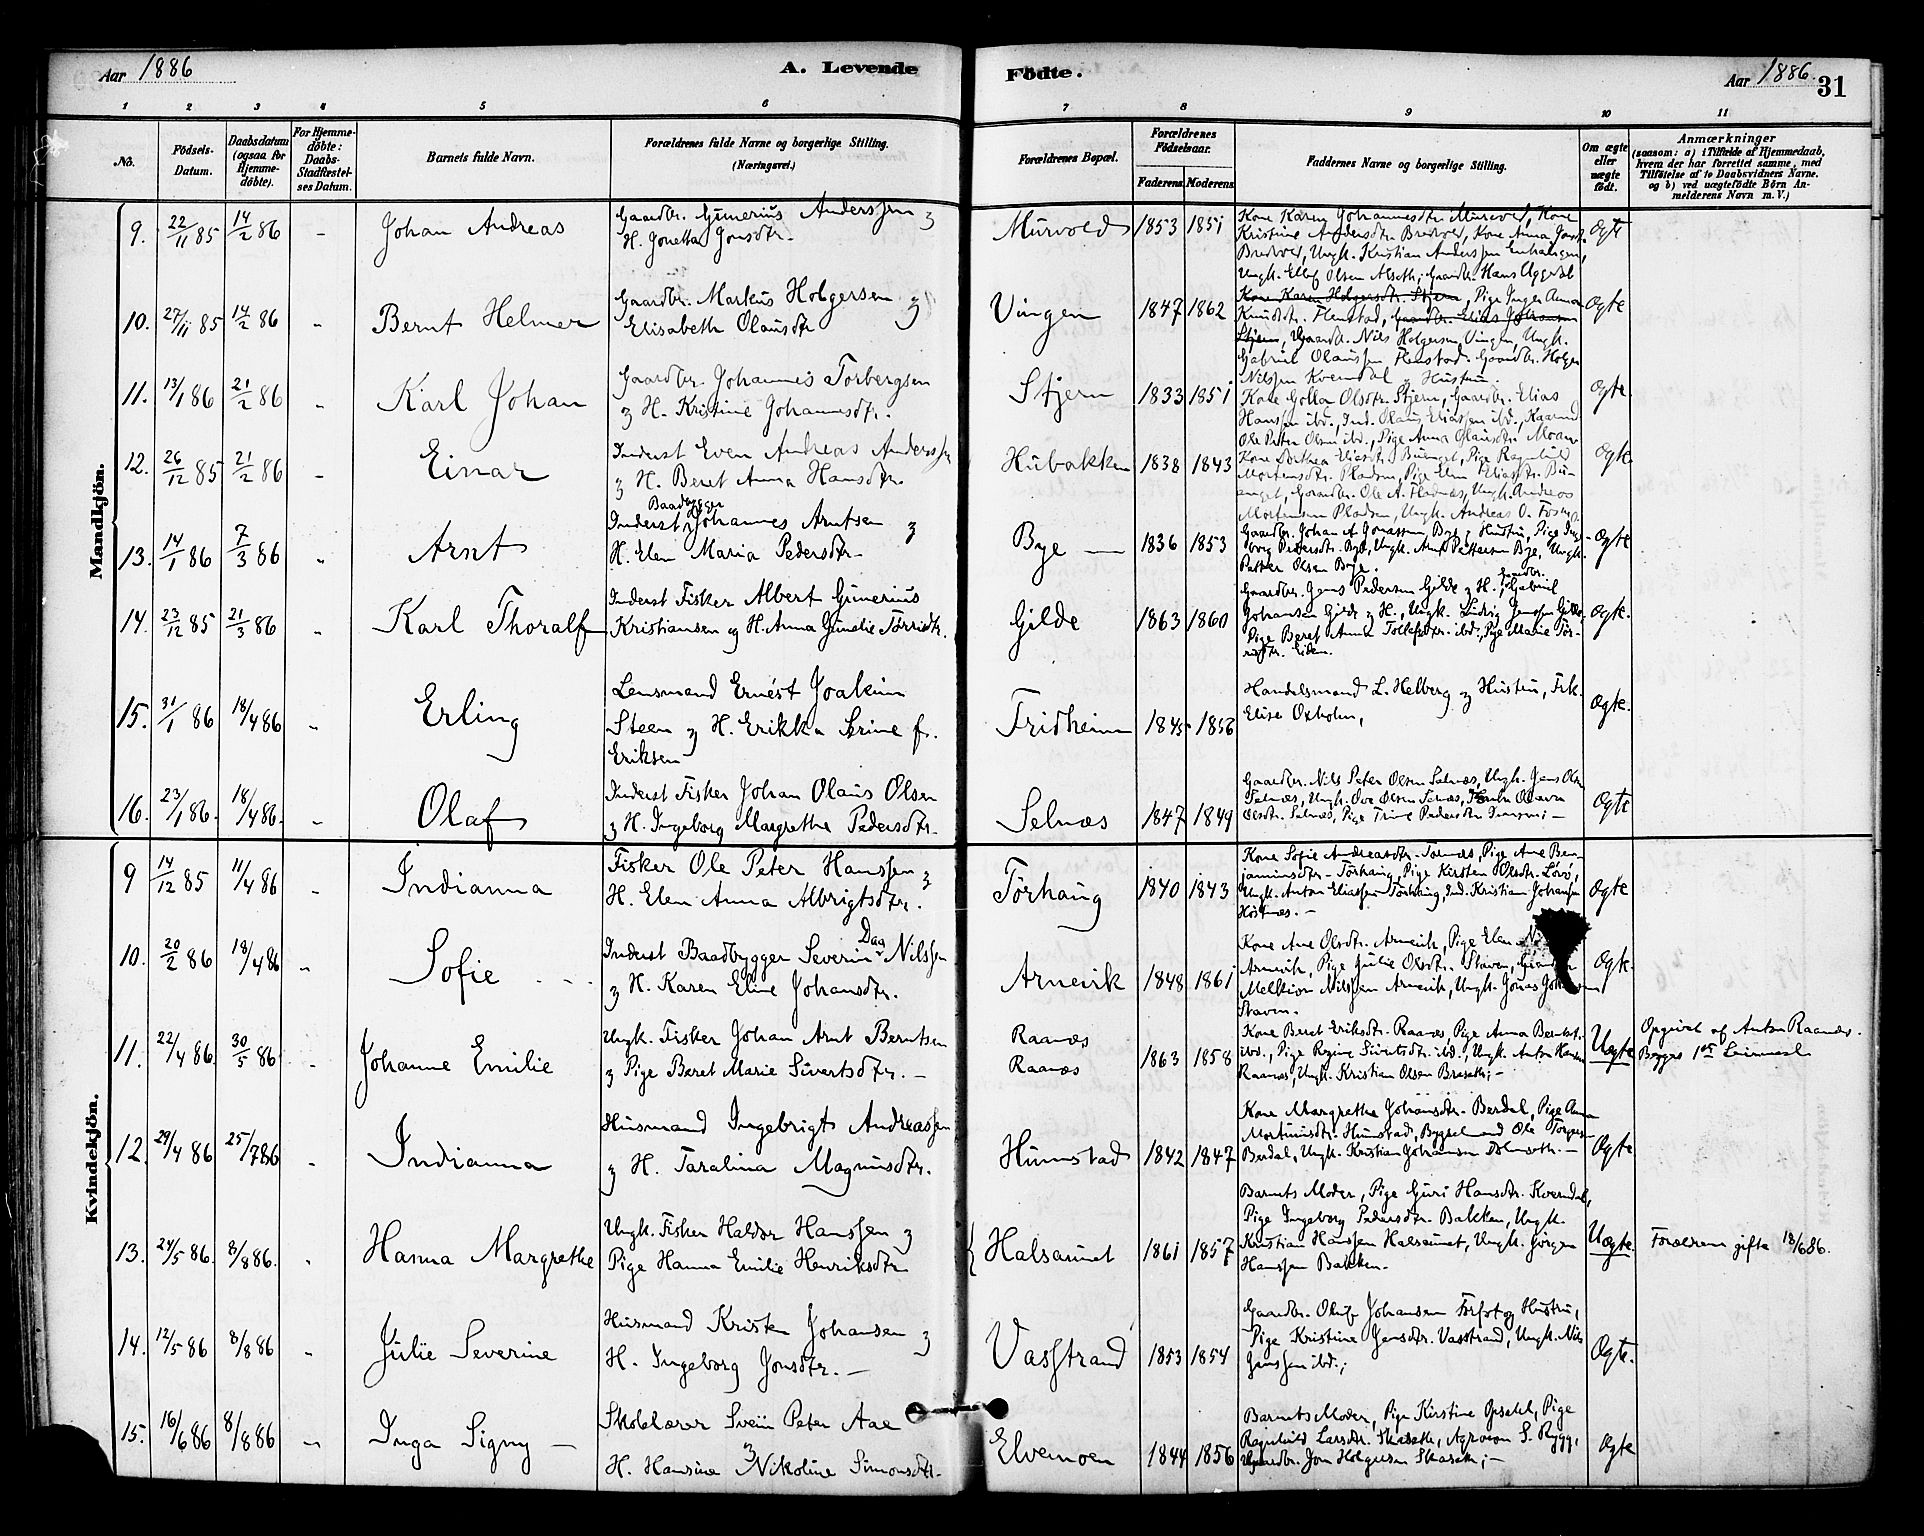 Aar 1886
A. Levende
Födte.
Aar 1886.
31
1 2 3 4 5 6 7 8 9 10 11
No.
Födsels-
Datum.
Daabsdatum
(ogsaa for
Hjemme-
döbte).
For Hjemme-
döbte:
Daabs-
Stadfæstel-
ses Datum.
Barnets fulde Navn.
Forældrenes fulde Navne og borgerlige Stilling.
(Næringsvei.)
Forældrenes Bopæl.
Forældrenes
Födselsaar.
Faderens. Moderens.
Faddernes Navne og borgerlige Stilling.
Om ægte
eller
uægte
födt.
Anmærkninger
(saasom: a) i Tilfælde af Hjemmedaab,
hvem der har forrettet samme, med
Tilföielse af to Daabsvidners Navne.
og b) ved uægtefödte Börn An-
melderens Navn m. V.)
Mandkjön.
9. 22/11 85 14/2 86 Johan Andreas
Gaardbr. Gunerius Anderssen &
H. Jonetta Jonsdtr.
Murvold 1853 1851
Kone Karen Johannesdtr. Murvold, Kone
Kristine Andersdtr. Bredvold, Kone Anna
Bredvold, Ungk. Kristian Anderssen
Ungk. Ellef Olsen Gaardbr. Hans
Ægte
10. 27/11 85 14/2 86 Bernt Helmer
Gaardbr. Markus Holgersen &
Elisabeth Olausdtr
Vingen 1847 1862
Kone Karen Holgersdtr. Stjern, Pige Inger Anna
Knudsdtr. Flenstad, Gaardbr. Elias Johansen
Stjern, Gaardbr. Nils Holgersen Vingen, Ungk.
Gabriel Olaussen Flenstad. Gaardbr. Holger
Nilssen Kverndal & Hustru.
Ægte
11. 13/1 86 21/2 86 Karl Johan
Gaardbr. Johannes Torbergsen
& H. Kristine Johannesdtr.
Stjern 1833 1851
Kone Golla Olsdtr. Stjern, Gaardbr. Elias
Hanssen ibd., Ind. Olaus Eliassen ibd., Kaarmd
Ole Peter Olsen ibd., Pige Anna Olausdtr. Moan
Ægte.
12. 26/12 85 21/2 86 Einar
Inderst Even Andreas Anderssen
& H. Beret Anna Hansdtr.
Hubakken 1838 1843
Kone Dorthea Eliasdtr. Pige Ragnhild
Mortensdtr. Pladsen, Pige Elen Eliasdtr.
Gaardbr. Ole A. Ungk. Andreas
Mortensen Pladsen, Ungk. Andreas O.
Ægte
13. 14/1 86 7/3 86 Arnt
Inderst Baadbygger Johannes Arntsen &
H. Elen Maria Pedersdtr.
Bye 1836 1853
Gaardbr. Johan A Jonassen Bye & Hustru, Pige Inge-
borg Pedersdtr. Bye, Ungk. Arnt Pettersen Bye, Ungk.
Petter Olsen Bye.
Ægte
14. 23/12 85 21/3 86 Karl Thoralf
Inderst Fisker Albert Gunerius
Kristiansen og H. Anna Gunelie
Gilde 1863 1860
Gaardbr. Jens Pedersen Gilde & H., Gaardbr. Gabriel
Johansen Gilde & H., Ungk. Ludvig Jenssen Gilde,
Pige Beret Anna Tollefsdtr. ibd., Pige Marie Tor-
risdtr. Eiden.
Ægte.
15. 31/1 86 18/4 86 Erling
Lensmand Ernést Joakim
Steen & H. Erikka Serine f.
Eriksen
Fridheim 1845 1856
Handelsmand L. Helberg & Hustru, Frk.
Elise Oxholm,
Ægte.
16. 23/1 86. 18/4 86. Olaf
Inderst Fisker Johan Olaus Olsen
& H. Ingeborg Margrethe Pedersdtr.
Selnæs 1847 1849
Gaardbr. Nils Peter Olsen Selnæs, Ungk. Jens Olsen
Selnæs, Ungk. Ove Olsen Selnæs, Olava
Olsdtr. Selnæs, Pige Trine Pedersdtr
Ægte
Kvindekjön.
9 14/12 85 11/4 86 Indianna
Fisker Ole Peter Hanssen &
H. Elen Anna Albrigtsdtr.
Törhaug 1840 1843
Kone Sofie Andreasdtr. Pige Ane Ben-
jaminsdtr. Törhaug, Pige Kirsten Olsdtr.
Ungk. Anton Eliassen Törhaug, Ind. Kristian Johansen
Höstnæs.
Ægte
10. 20/2 86 18/4 86 Sofie
Inderst Baadbygger Severin Daa Nilssen
& H. Karen Eline Johansdtr.
Arnevik 1848 1861
Kone Ane Olsdtr. Arnevik, Pige Elen
Arnevik, Pige Julie Olsdtr. Staven,
Melkior Nilssen Arnevik, Ungk. Jonas
Staven.
Ægte.
11. 22/4 86. 30/5 86 Johanne Emilie
Ungk. Fisker Johan Arnt Berntsen
& Pige Beret Marie Sivertsdtr.
Raanæs
Raanæs
1863 1858
Kone Beret Eriksdtr. Raanæs, Pige Anna
ibd., Pige Regine Sivertsdtr. ibd., Ungk. Anton Hansen
Raanæs, Ungk. Kristian Olsen
Uægte
Opgivet af Anton Raanæs.
Begges 1ste Leiermaal
12. 29/4 86 25/7 86 Indianna
Husmand Ingebrigt Andreassen
& H. Taralina Magnusdtr.
Humstad 1842 1847
Kone Margrethe Johansdtr. Berdal, Pige
Humstad, Bygselmand Ole
Berdal, Ungk. Kristian Johansen
Ægte
13. 24/5 86. 8/8 86. Hanna Margrethe
Ungk. Fisker Haldor Hanssen &
Pige Hanna Emilie Henriksdtr
Halsaunet 1861 1857
Barnets Moder, Pige Guri Hansdtr. Kverndal,
Pige Ingeborg Pedersdtr. Bakken, Ungk.
Kristian Hanssen Halsaunet, Ungk. Jörgen
Hanssen Bakken.
Uægte.
Forældrene gifte 18/6 86.
14. 12/5 86 8/8 86 Julie Severine
Husmand Kristen Johansen &
H. Ingeborg Jonsdtr.
Vasstrand 1853 1854
Gaardbr. Oluf Johansen og Hustru,
Pige Kristine Jensdtr. Vasstrand, Ungk. Nils
Jenssen ibd.;
Ægte.
15. 16/6 86 8/8 86 Inga Signy
Skolelærer Svein Peter Aae
& H. Hansine Nikoline Simonsdtr.
Elvemoen 1844 1856
Barnets Moder, Pige Kirstine Opsahl, Pige
Ragnhild Larsdtr. Agronom S. Rygg,
Gaardbr. Jon Holgersen
Ægte